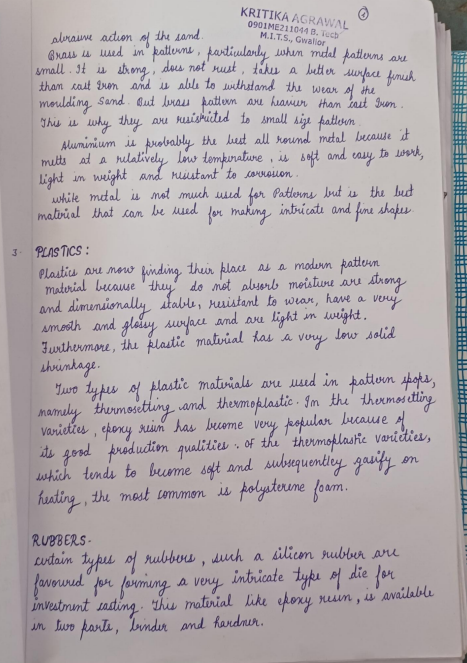 KRITIKA AGRAWAL
0901ME211044 B. Tech
M.I.T.S., Gwalior
1
abrasive action of the sand.
Brass is used in patterns, particularly when metal patterns are
small. It is strong, does not rust, takes a better surface finish
than cast Iron and is able to withstand the wear of the
moulding sand. But brass pattern are heavier than cast Iron.
This is why they are resistricted to small size pattern.
Aluminium is probably the best all round metal because it
melts at a relatively low temperature, is soft and easy to work,
light in weight and resistant to corrosion.
white metal is not much used for Patterns but is the best
material that can be used for making intricate and fine shapes.
3. PLASTICS :
Plastics are now finding their place as a modern pattern
material because they do not absorb moisture are strong
and dimensionally stable, resistant to wear, have a very
smooth and glossy surface and are light in weight.
Furthermore, the plastic material has a very low solid
shrinkage.
Two types of plastic materials are used in pattern spops,
namely thermosetting and thermoplastic. In the thermosetting
varieties, epoxy resin has become very popular because of
its good production qualities. Of the thermoplastic varieties,
which tends to become soft and subsequentley gasify on
heating, the most common is polysterene foam.
RUBBERS-
certain types of rubbers, such a silicon rubber are
favoured for forming a very intricate type of die for
investment casting. This material like epoxy resin, is available
in two parts, binder and hardner.